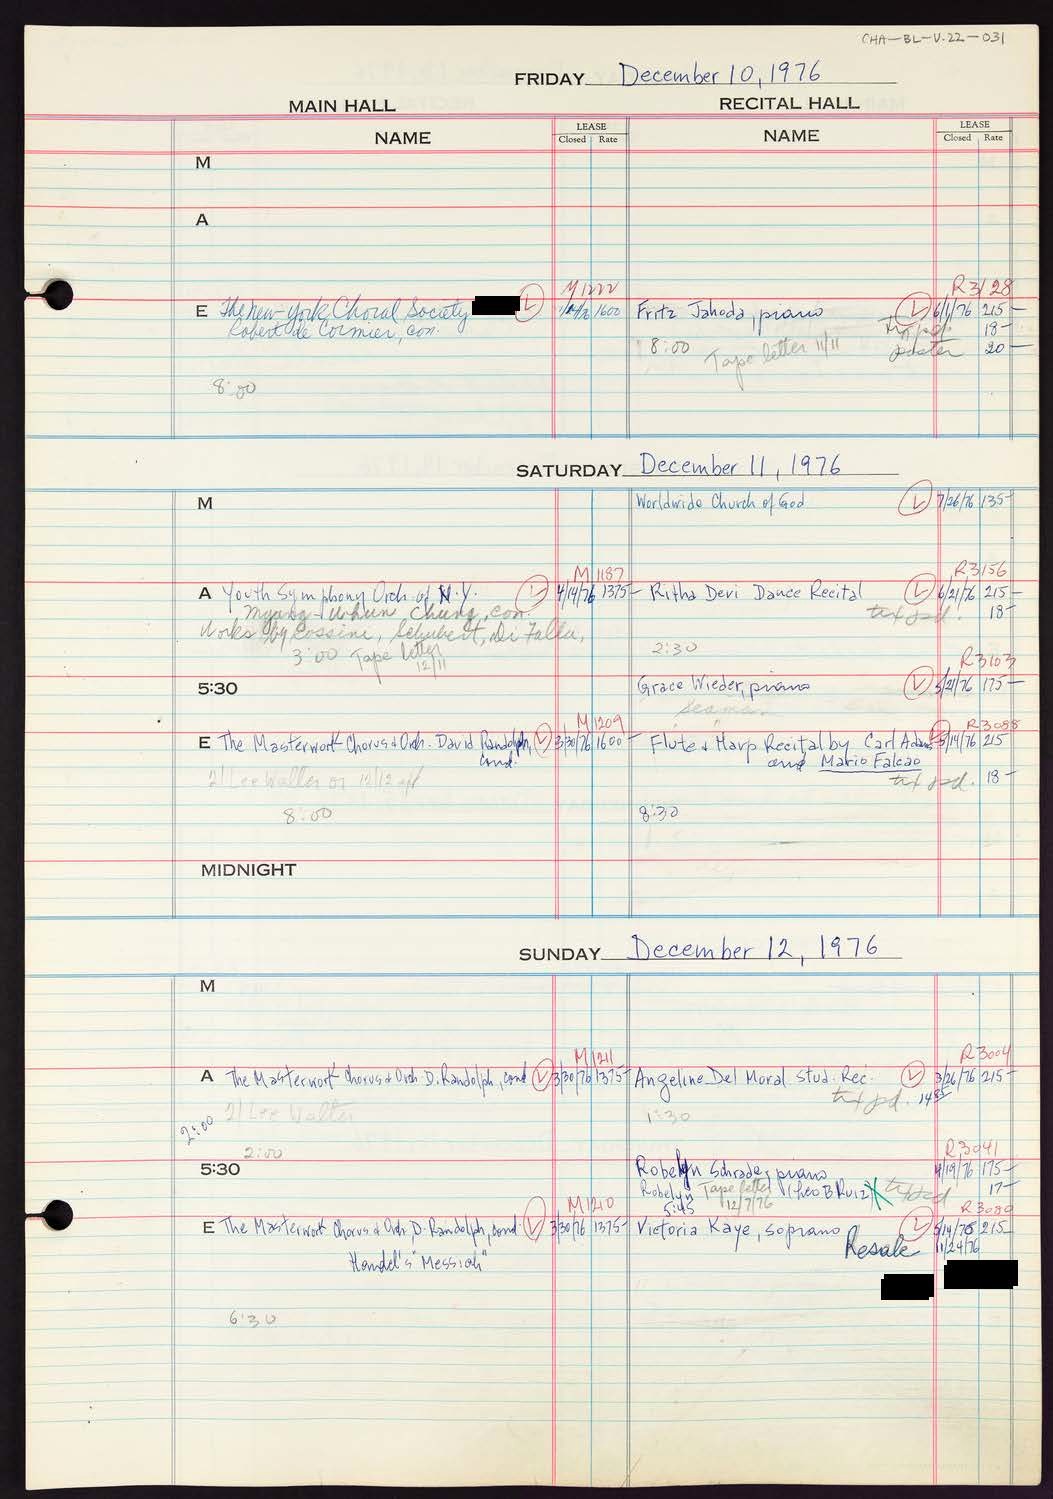 CHA-BL-V.22-031
FRIDAY December 10, 1976
MAIN HALL RECITAL HALL
NAME LEASE Closed Rate NAME LEASE Closed Rate
M
A
M1222 R3128
E The New-York Choral Society 1600 Fritz Jahoda, piano 6/1/76 215-
Robert de Cormier, con. 18-
8:00 Tape letter 11/11 poster 20-
8:00
SATURDAY December 11, 1976
M Worldwide Church of God 7/26/76 135-
M1187 R3156
A Youth Symphony Orch. of N.Y. 4/14/76 1375- Ritha Devi Dance Recital 6/21/76 215-
Myung-Whun Chung, con. txt pd. 18-
Works by Rossini, Schubert, Di Falla,
3:00 Tape letter 2:30
12/11
R3103
5:30 Grace Wieder, piano 5/21/76 175-
Seaman
M1209 R3088
E The Masterwork Chorus & Orch. David Randolph, 3/30/76 1600- Flute & Harp Recital by Carl Adams 5/14/76 215
Cond. and Mario Falcao
2/ Lee Walter or 12/12 txt pd. 18-
8:00 8:30
MIDNIGHT
SUNDAY December 12, 1976
M
M1211 R3004
A The Masterwork Chorus & Orch. D. Randolph, cond 3/30/76 1375- Angeline Del Moral Stud. Rec. 3/26/76 215-
txt pd. 14 85
2/ Lee Walter 1:30
2:00
2:00
R3041
5:30 Robelyn Schrade, piano 4/19/76 175-
Robelyn Tape letter (Theo B Ruiz) txt pd 17-
5:45 12/7/76
M1210 R3089
E The Masterwork Chorus & Orch. D. Randolph, cond 3/30/76 1375- Victoria Kaye, soprano 5/14/76 215-
Handel's "Messiah" Resale 11/24/76
6:30